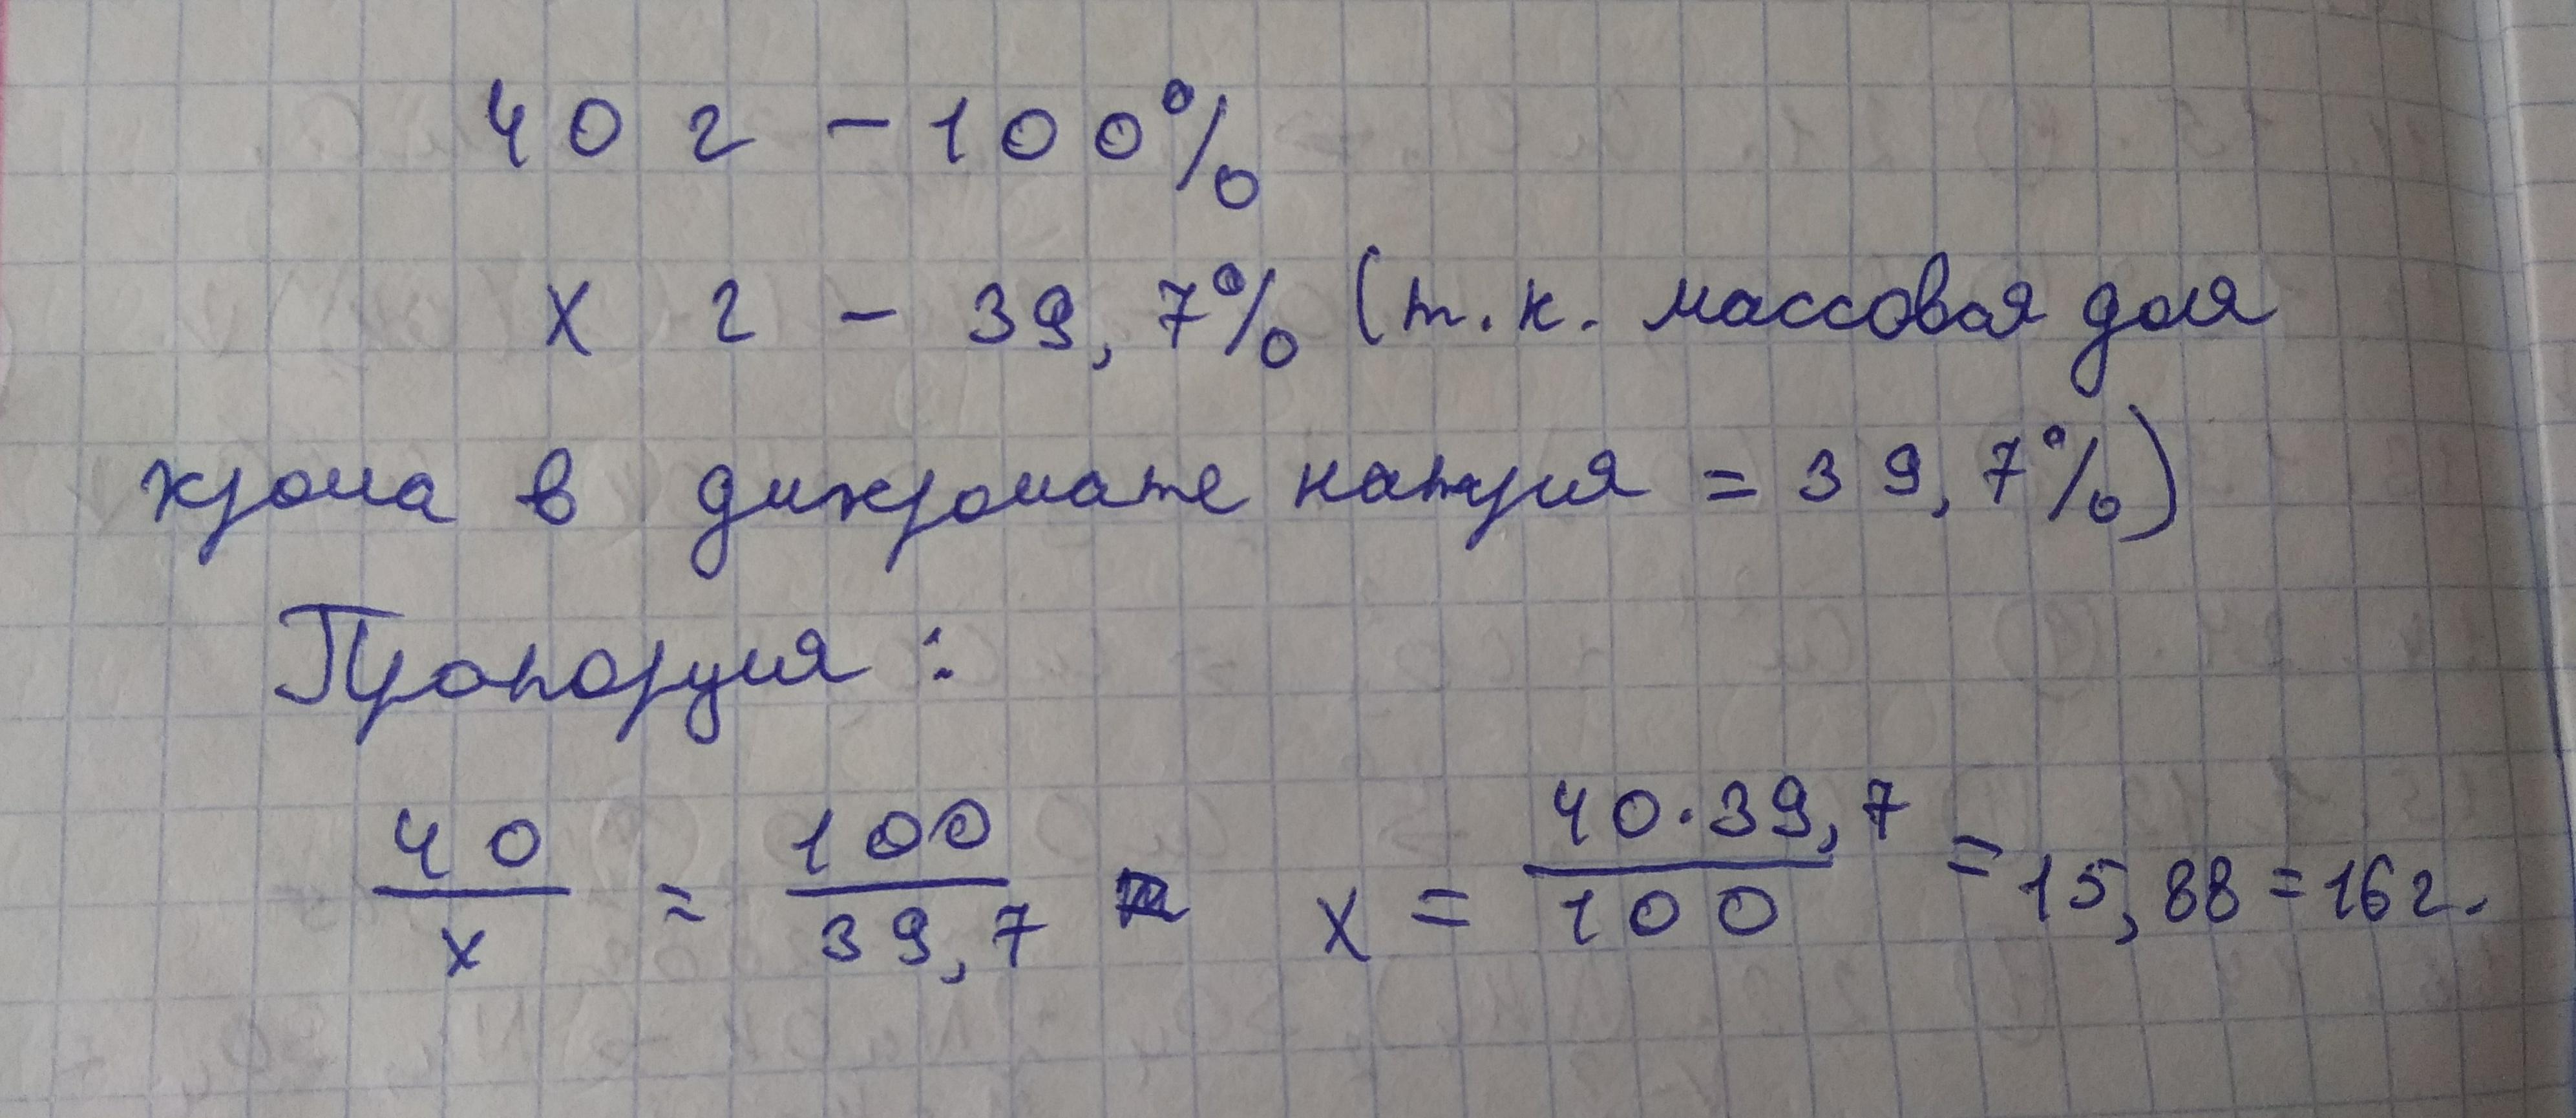 40 г - 100%
х г - 39,7% (т.к. массовая доля
хрома в дихромате натрия = 39,7%)
Пропорция:
40/х = 100/39,7 х = 40·39,7/100 = 15,88 = 16 г.